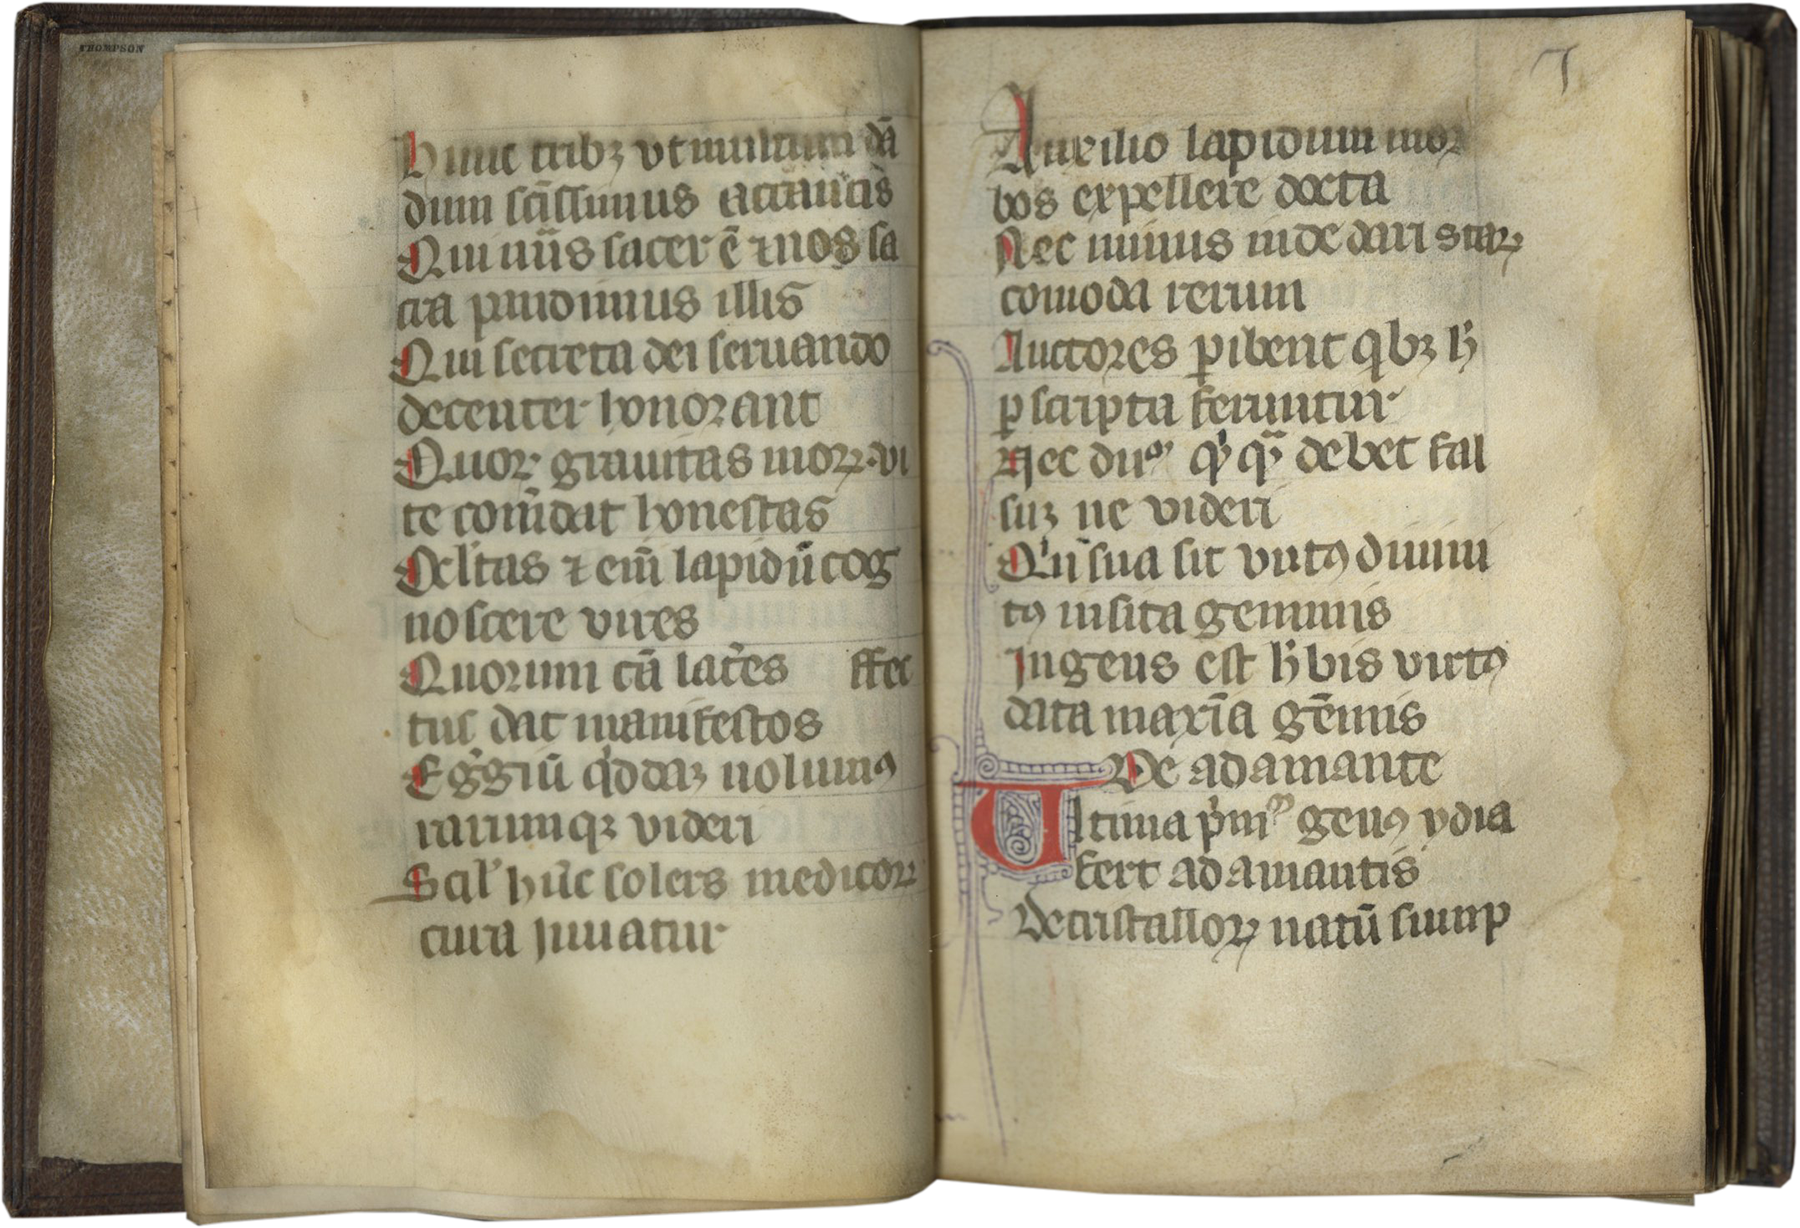 THOMPSON
hunc tribꝫ vt multum dā
dum scīssimus accantis
Qui nūs sacer ē ⁊ nos sa
cra putidimus illis
Qui secreta dei seruando
decenter honorant
Quor grauitas morꝝ · vi
te com̄dat honestas
Vtil'tas ⁊ em̄ lapidū cog
noscere vires
Quorum cā lat'es effec
tus dat manifestos
Egg'iū q'ddaꝫ uolumꝰ
rarumqꝫ videri
Scil' hūc solers medicorꝝ
cura juuatur
7
Auxilio lapidum mor
bos expellere docta
Nec minus inde dari starꝝ
comoda rerum
Auctores ꝑibent qbꝫ h̄
ꝑscripta feruntur
Nec du° q' q̄ debet fal
suꝫ ne videri
Qui' sua sit virtꝰ diuini
tꝰ insita gemmis
Ingens est h̄bis virtꝰ
data maxīa gēmis
De adamante
Vltima p'm° genꝰ ydia
fert adamantis
De cristallorꝝ natū sump